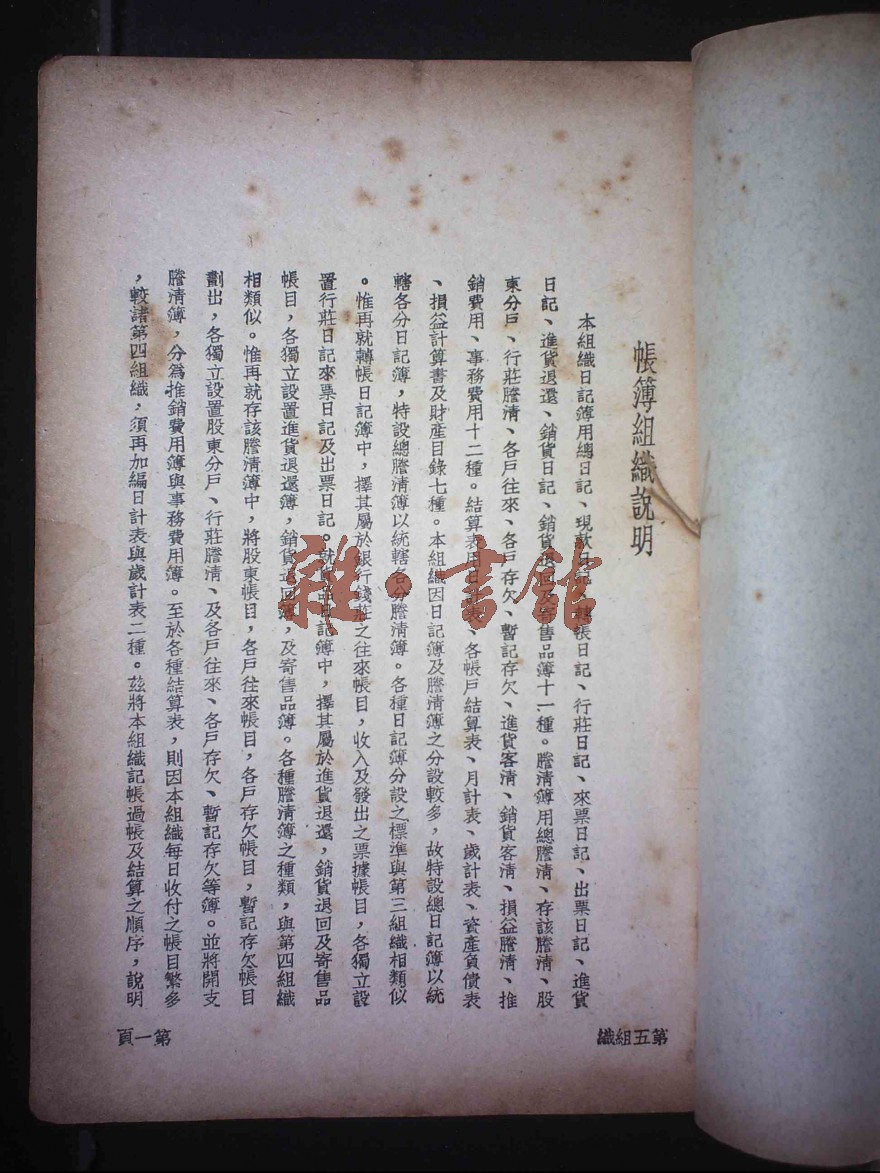 帳簿組織說明
本組織日記簿用總日記、現款日記、轉帳日記、行莊日記、來票日記、出票日記、進貨
日記、進貨退還、銷貨日記、銷貨退回及寄售品簿十一種。謄清簿用總謄清、存該謄清、股
東分戶、行莊謄清、各戶往來、各戶存欠、暫記存欠、進貨客清、銷貨客清、損益謄清、推
銷費用、事務費用十二種。結算表用日計表、各帳戶結算表、月計表、歲計表、資產負債表
、損益計算書及財產目錄七種。本組織因日記簿及謄清簿之分設較多，故特設總日記簿以統
轄各分日記簿，特設總謄清簿以統轄各分謄清簿。各種日記簿分設之標準與第三組織相類似
。惟再就轉帳日記簿中，擇其屬於銀行錢莊之往來帳目，收入及發出之票據帳目，各獨立設
置行莊日記來票日記及出票日記。就貨品日記簿中，擇其屬於進貨退還，銷貨退回及寄售品
帳目，各獨立設置進貨退還簿，銷貨退回簿，及寄售品簿。各種謄清簿之種類，與第四組織
相類似。惟再就存該謄清簿中，將股東帳目，各戶往來帳目，各戶存欠帳目，暫記存欠帳目
劃出，各獨立設置股東分戶、行莊謄清、及各戶往來、各戶存欠、暫記存欠等簿。並將開支
謄清簿，分為推銷費用簿與事務費用簿。至於各種結算表，則因本組織每日收付之帳目繁多
，較諸第四組織，須再加編日計表與歲計表二種。茲將本組織記帳過帳及結算之順序，說明
第五組織
第一頁
雜·書館